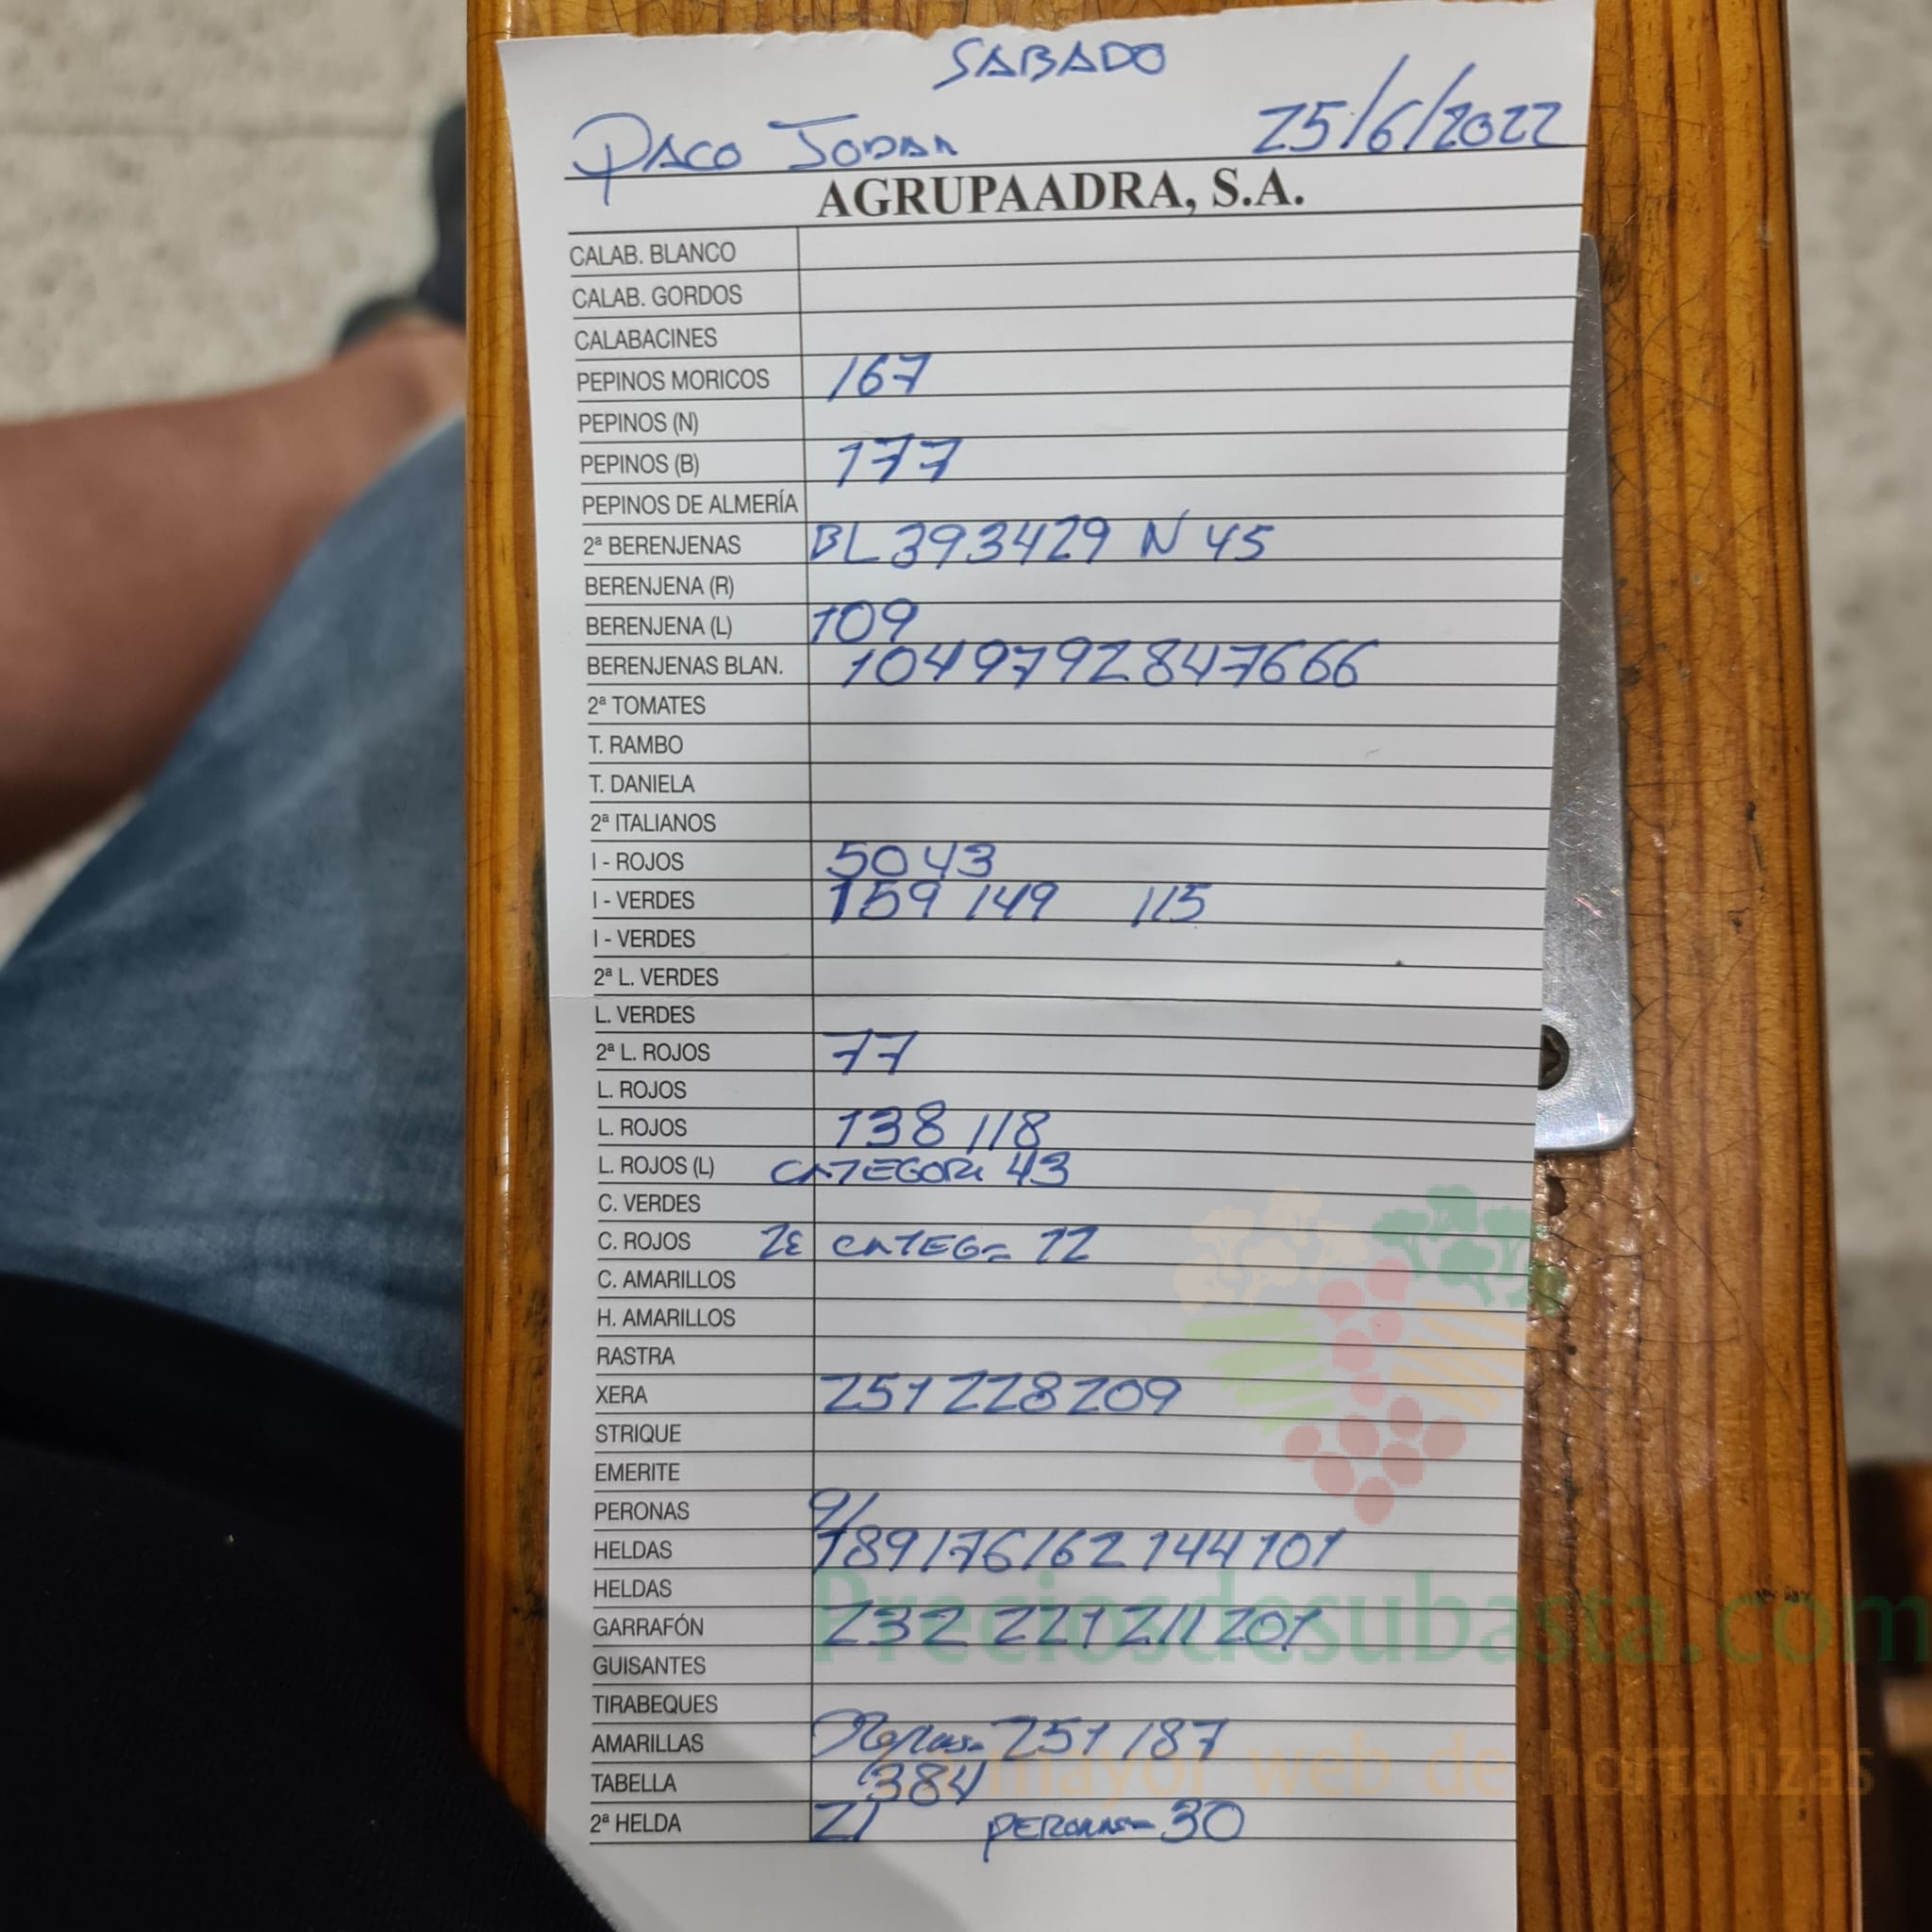 SABADO
PACO JODAR 25/6/2022
AGRUPAADRA, S.A.
CALAB. BLANCO
CALAB. GORDOS
CALABACINES
PEPINOS MORICOS 167
PEPINOS (N)
PEPINOS (B) 177
PEPINOS DE ALMERÍA
2ª BERENJENAS BL 39 34 29 N 45
BERENJENA (R)
BERENJENA (L) 109
BERENJENAS BLAN. 104 97 92 84 76 66
2ª TOMATES
T. RAMBO
T. DANIELA
2ª ITALIANOS
I - ROJOS 50 43
I - VERDES 159 149 115
I - VERDES
2ª L. VERDES
L. VERDES
2ª L. ROJOS 77
L. ROJOS
L. ROJOS 138 118
L. ROJOS (L) CATEGORI 43
C. VERDES
C. ROJOS 2ª CATEG= 12
C. AMARILLOS
H. AMARILLOS
RASTRA
XERA 251 228 209
STRIQUE
EMERITE
PERONAS 91
HELDAS 189 176 162 144 101
HELDAS
GARRAFÓN 232 221 211 201
GUISANTES
TIRABEQUES
AMARILLAS 251 187
TABELLA 384
2ª HELDA 21 PERONAS= 30
Preciosdesubasta.com
mayor web de hortalizas